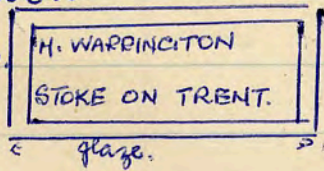 H. WARRINGTON
STOKE ON TRENT.
glaze.